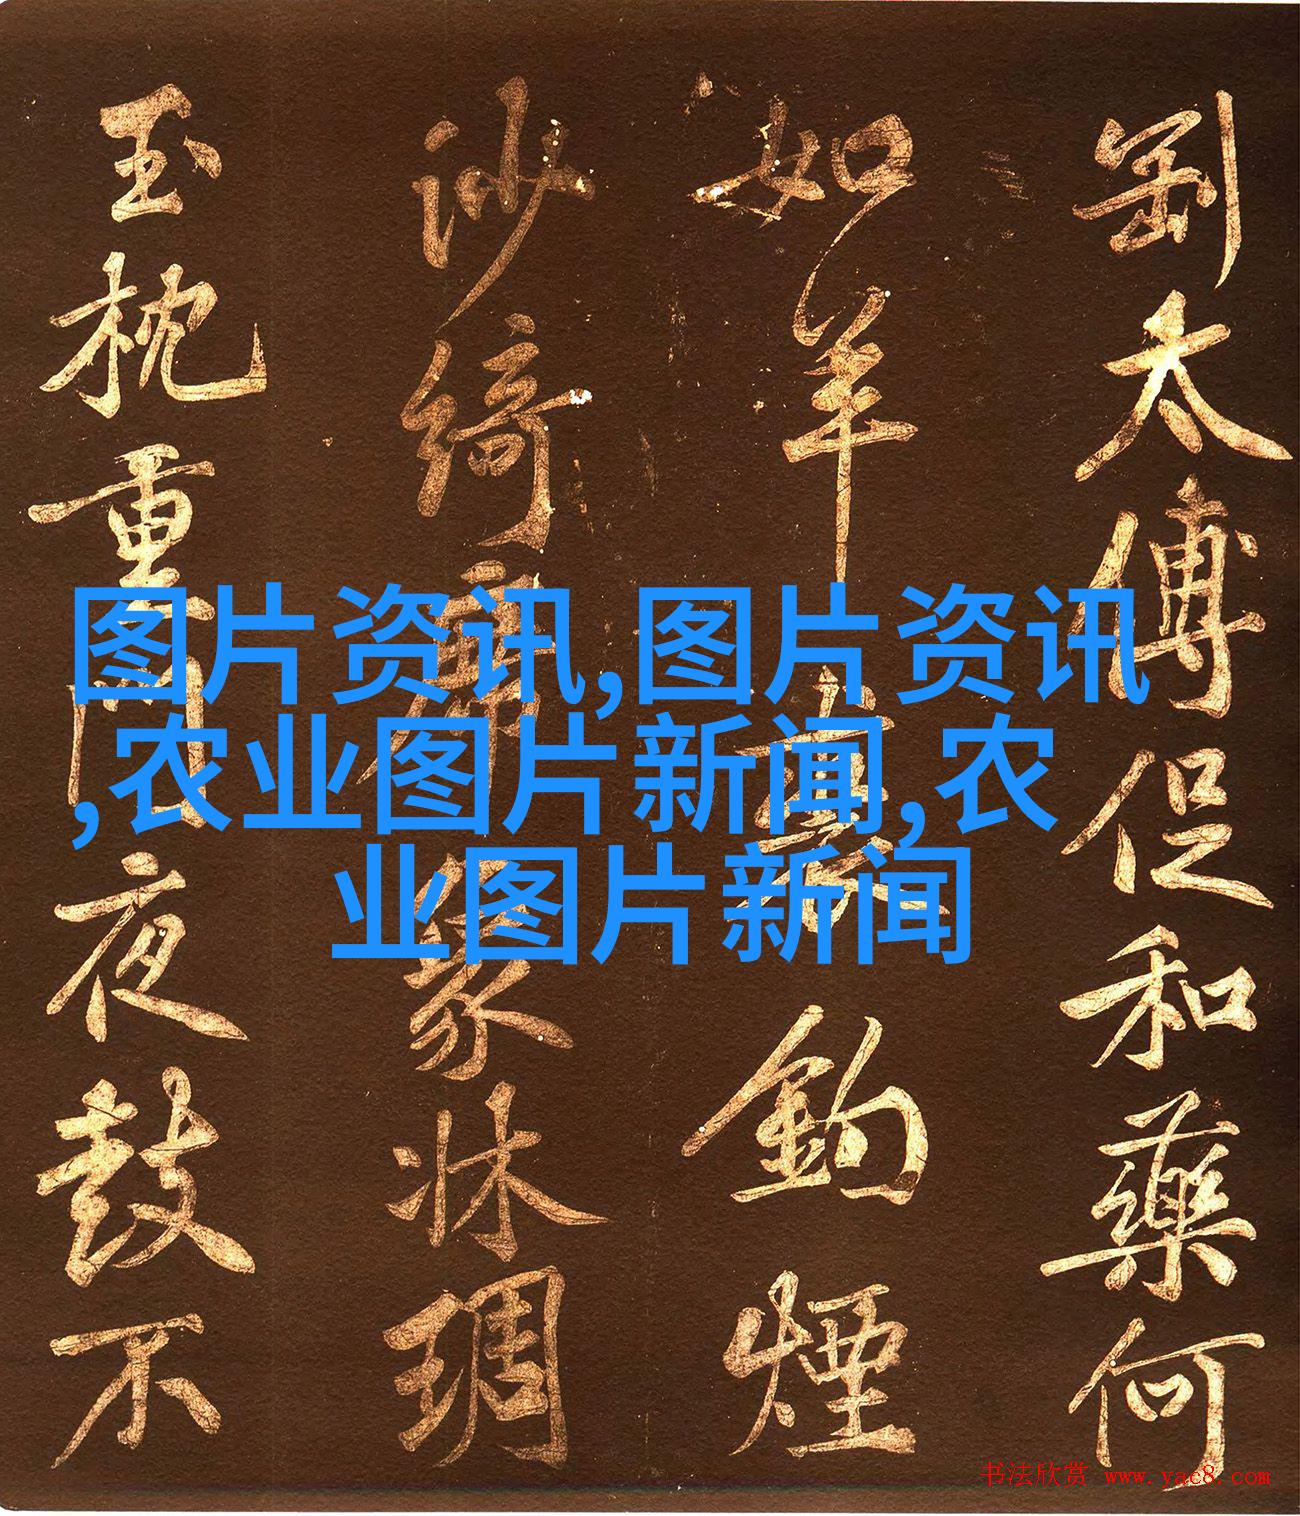 劉太傅促和藥何
如羊釣煙
沙綺席象牀琱
玉枕重門夜鼓不
图片资讯,图片资讯
,农业图片新闻,农
业图片新闻
书法欣赏 www.yac8.com